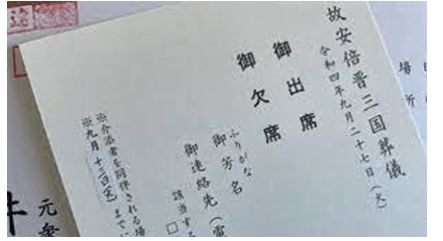 故安倍晋三国葬儀
令和四年九月二十七日(火)
御出席
御欠席
ふりがな
御芳名
御連絡先(電
該当する
□
※介添者を同伴される場
※九月十三日(火)までに
場所
元衆